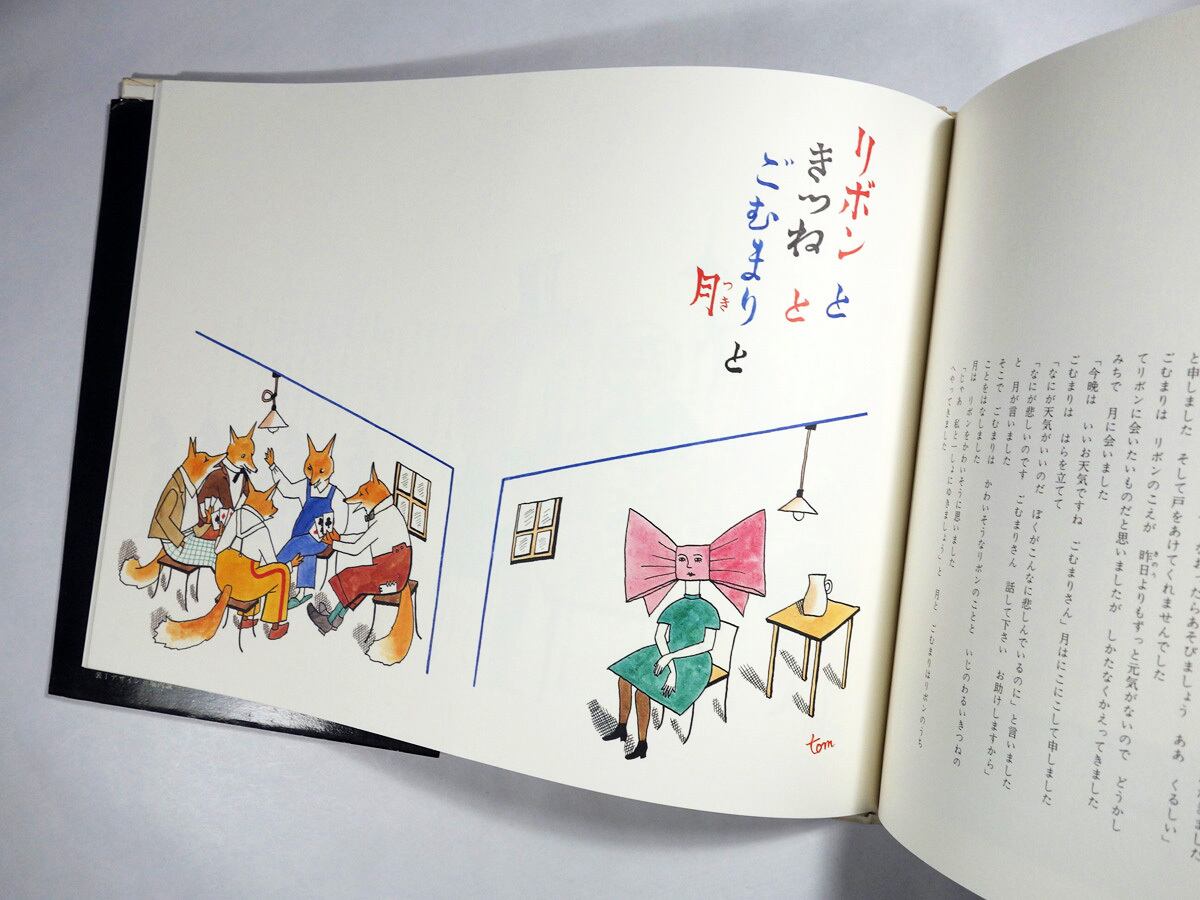 リボンと
きつねと
ごむまりと
月
つき
tom
と申しました そして戸をあけてくれませんでした
ごむまりは リボンのこえが 昨日よりもずっと元気がないので どうかし
きのう
てリボンに会いたいものだと思いましたが しかたなくかえってきました
みちで 月に会いました
「今晩は いいお天気ですね ごむまりさん」月はにこにこして申しました
ごむまりは はらを立てて
「なにが天気がいいのだ ぼくがこんなに悲しんでいるのに」と言いました
「なにが悲しいのです ごむまりさん 話して下さい お助けしますから」
と 月が言いました
そこで ごむまりは かわいそうなリボンのことと いじのわるいきつねの
ことをはなしました
月は リボンをかわいそうに思いました
「じゃあ 私と一しょにゆきましょう」と 月と ごむまりはリボンのうち
へやってきました